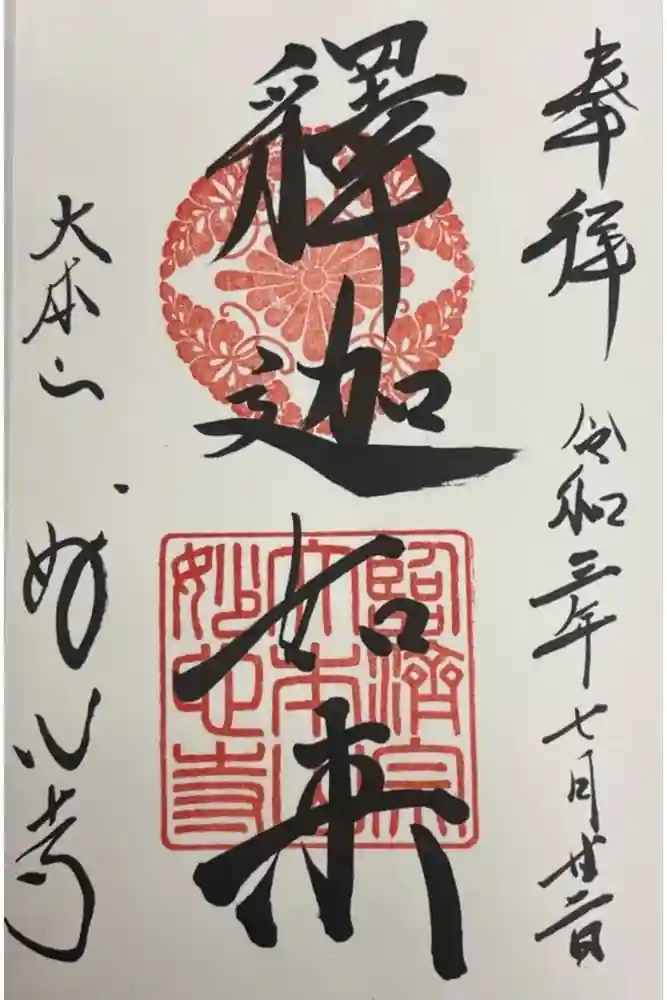 奉拝
令和三年七月廿二日
釋迦如来
大本山
妙心寺
臨濟宗
大本山
妙心寺